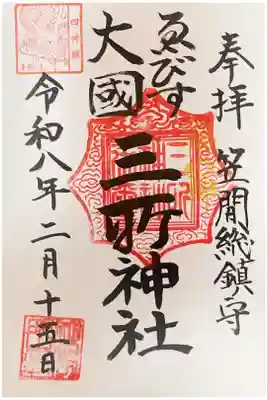 奉拝
笠間総鎮守
ゑびす
大國
三所神社
令和八年二月十五日